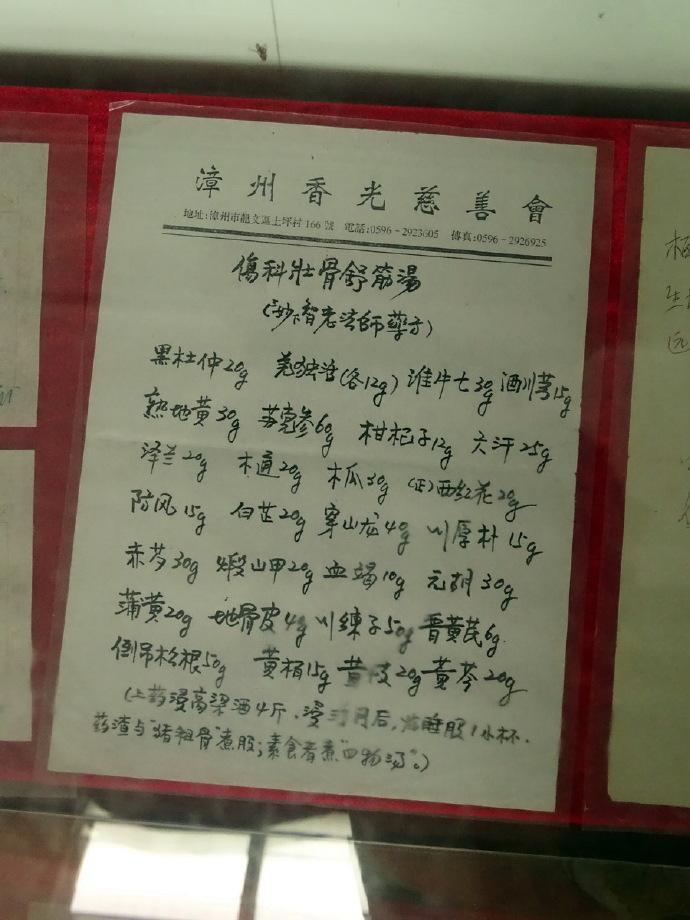 漳州香光慈善會
地址:漳州市龍文區上坪村166號 電話:0596-2923605 傳真:0596-2926925
傷科壯骨舒筋湯
(妙智老法師藥方)
黑杜仲20g 羌独活(各12g) 淮牛七30g 酒川芎15g
熟地黄30g 党参60g 柑杞子12g 六汗25g
泽兰20g 木通20g 木瓜30g (正)西红花20g
防风15g 白芷20g 穿山龙40g 川厚朴15g
赤芍30g 煅山甲20g 血竭10g 元胡30g
蒲黄20g 地骨皮4g 川練子50g 晋黄芪6g
倒吊松根50g 黄柏15g 黄 20g 黄芩20g
(上药浸高梁酒4斤.浸 月后, 睡服1小杯.
药渣与"猪粗骨"煮服;素食者煮"四物汤"。)
极
生
远